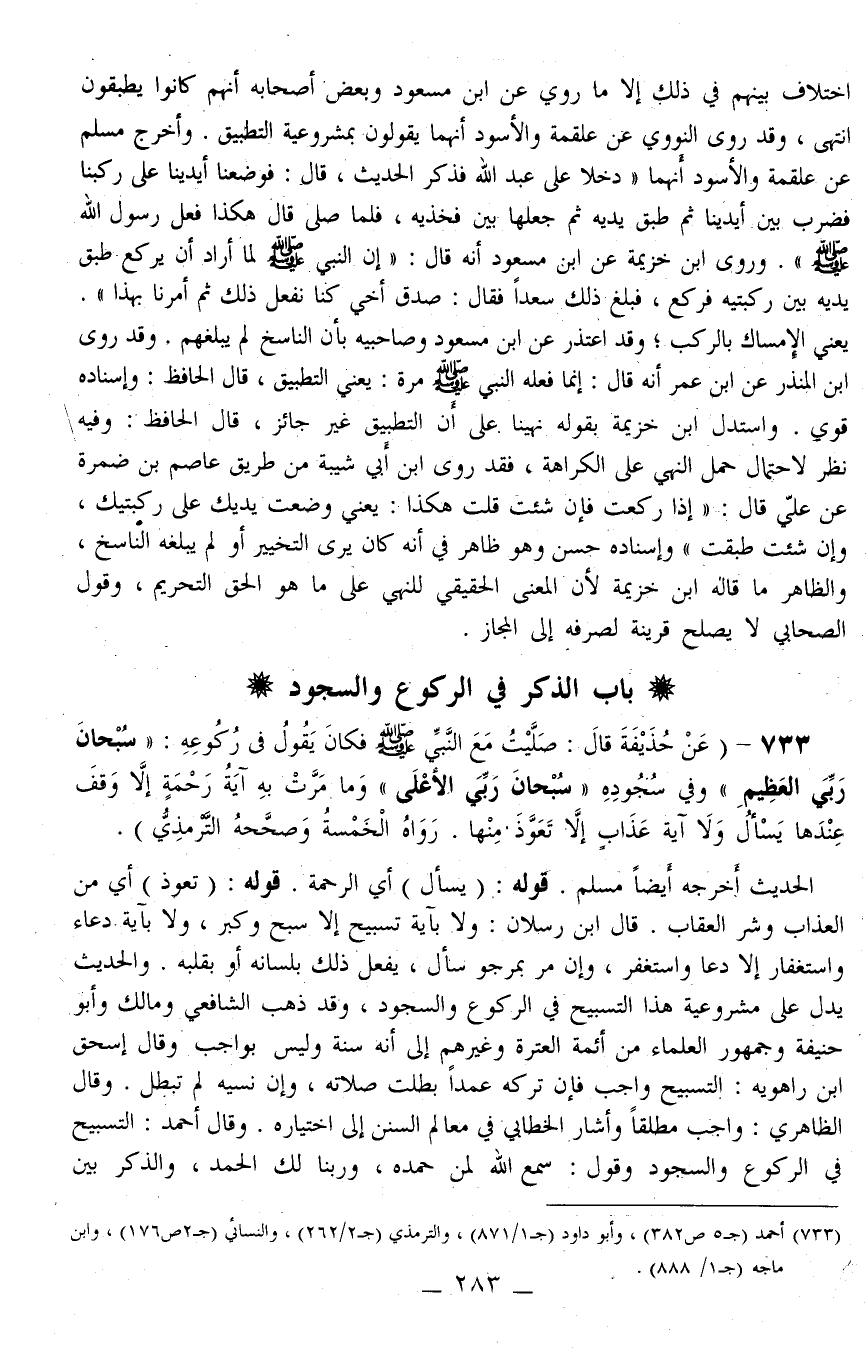 اختلاف بينهم في ذلك إلا ما روي عن ابن مسعود وبعض أصحابه أنهم كانوا يطبقون
انتهى ، وقد روى النووي عن علقمة والأسود أنهما يقولون بمشروعية التطبيق . وأخرج مسلم
عن علقمة والأسود أنهما « دخلا على عبد الله فذكر الحديث ، قال : فوضعنا أيدينا على ركبنا
فضرب بين أيدينا ثم طبق يديه ثم جعلها بين فخذيه ، فلما صلى قال هكذا فعل رسول الله
ﷺ » . وروى ابن خزيمة عن ابن مسعود أنه قال : « إن النبي ﷺ لما أراد أن يركع طبق
يديه بين ركبتيه فركع ، فبلغ ذلك سعداً فقال : صدق أخي كنا نفعل ذلك ثم أمرنا بهذا » .
يعني الإمساك بالركب ؛ وقد اعتذر عن ابن مسعود وصاحبيه بأن الناسخ لم يبلغهم . وقد روى
ابن المنذر عن ابن عمر أنه قال : إنما فعله النبي ﷺ مرة : يعني التطبيق ، قال الحافظ : وإسناده
قوي . واستدل ابن خزيمة بقوله نهينا على أن التطبيق غير جائز ، قال الحافظ : وفيه
نظر لاحتمال حمل النهي على الكراهة ، فقد روى ابن أبي شيبة من طريق عاصم بن ضمرة
عن عليّ قال : « إذا ركعت فإن شئت قلت هكذا : يعني وضعت يديك على ركبتيك ،
وإن شئت طبقت » وإسناده حسن وهو ظاهر في أنه كان يرى التخيير أو لم يبلغه الناسخ ،
والظاهر ما قاله ابن خزيمة لأن المعنى الحقيقي للنهي على ما هو الحق التحريم ، وقول
الصحابي لا يصلح قرينة لصرفه إلى المجاز .
باب الذكر في الركوع والسجود
٧٣٣ – ( عَنْ حُذَيْفَةَ قالَ : صَلَّيْتُ مَعَ النَّبِيِّ ﷺ فَكانَ يَقُولُ فى رُكُوعِهِ : « سُبْحانَ
رَبِّيَ العَظِيمِ » وفي سُجُودِهِ « سُبْحانَ رَبِّيَ الأعْلَى » وَما مَرَّتْ بِهِ آيَةُ رَحْمَةٍ إلَّا وَقَفَ
عِنْدَها يَسْألُ وَلَا آية عَذَابٍ إلَّا تَعَوَّذَ مِنْها . رَوَاهُ الْخَمْسةُ وَصحَّحهُ التِّرْمذِيُّ ) .
الحديث أخرجه أيضاً مسلم . قوله : ( يسأل ) أي الرحمة . قوله : ( تعوذ ) أي من
العذاب وشر العقاب . قال ابن رسلان : ولا بآية تسبيح إلا سبح وكبر ، ولا بآية دعاء
واستغفار إلا دعا واستغفر ، وإن مر بمرجو سأل ، يفعل ذلك بلسانه أو بقلبه . والحديث
يدل على مشروعية هذا التسبيح في الركوع والسجود ، وقد ذهب الشافعي ومالك وأبو
حنيفة وجمهور العلماء من أئمة العترة وغيرهم إلى أنه سنة وليس بواجب وقال إسحق
ابن راهويه : التسبيح واجب فإن تركه عمداً بطلت صلاته ، وإن نسيه لم تبطل . وقال
الظاهري : واجب مطلقاً وأشار الخطابي في معالم السنن إلى اختياره . وقال أحمد : التسبيح
في الركوع والسجود وقول : سمع الله لمن حمده ، وربنا لك الحمد ، والذكر بين
(٧٣٣) أحمد (جـ٥ ص٣٨٢) ، وأبو داود (جـ٨٧١/١) ، والترمذي (جـ٢٦٢/٢) ، والنسائي (جـ٢ص١٧٦) ، وابن
ماجه (جـ١/ ٨٨٨) .
– ٢٨٣ –